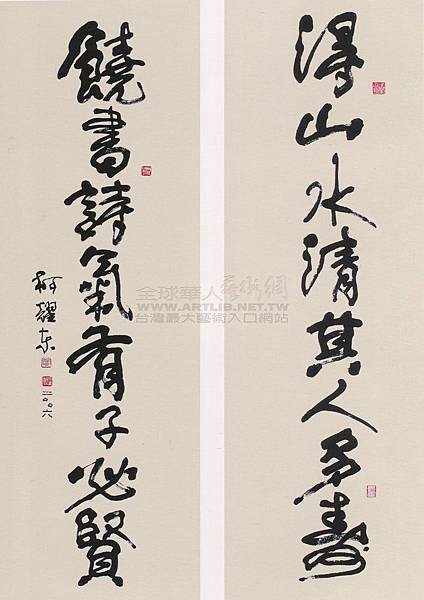 得山水清其人多壽
饒書詩氣有子必賢
柯耀東
二〇〇六
全球華人藝術網
WWW.ARTLIB.NET.TW
台灣最大藝術入口網站